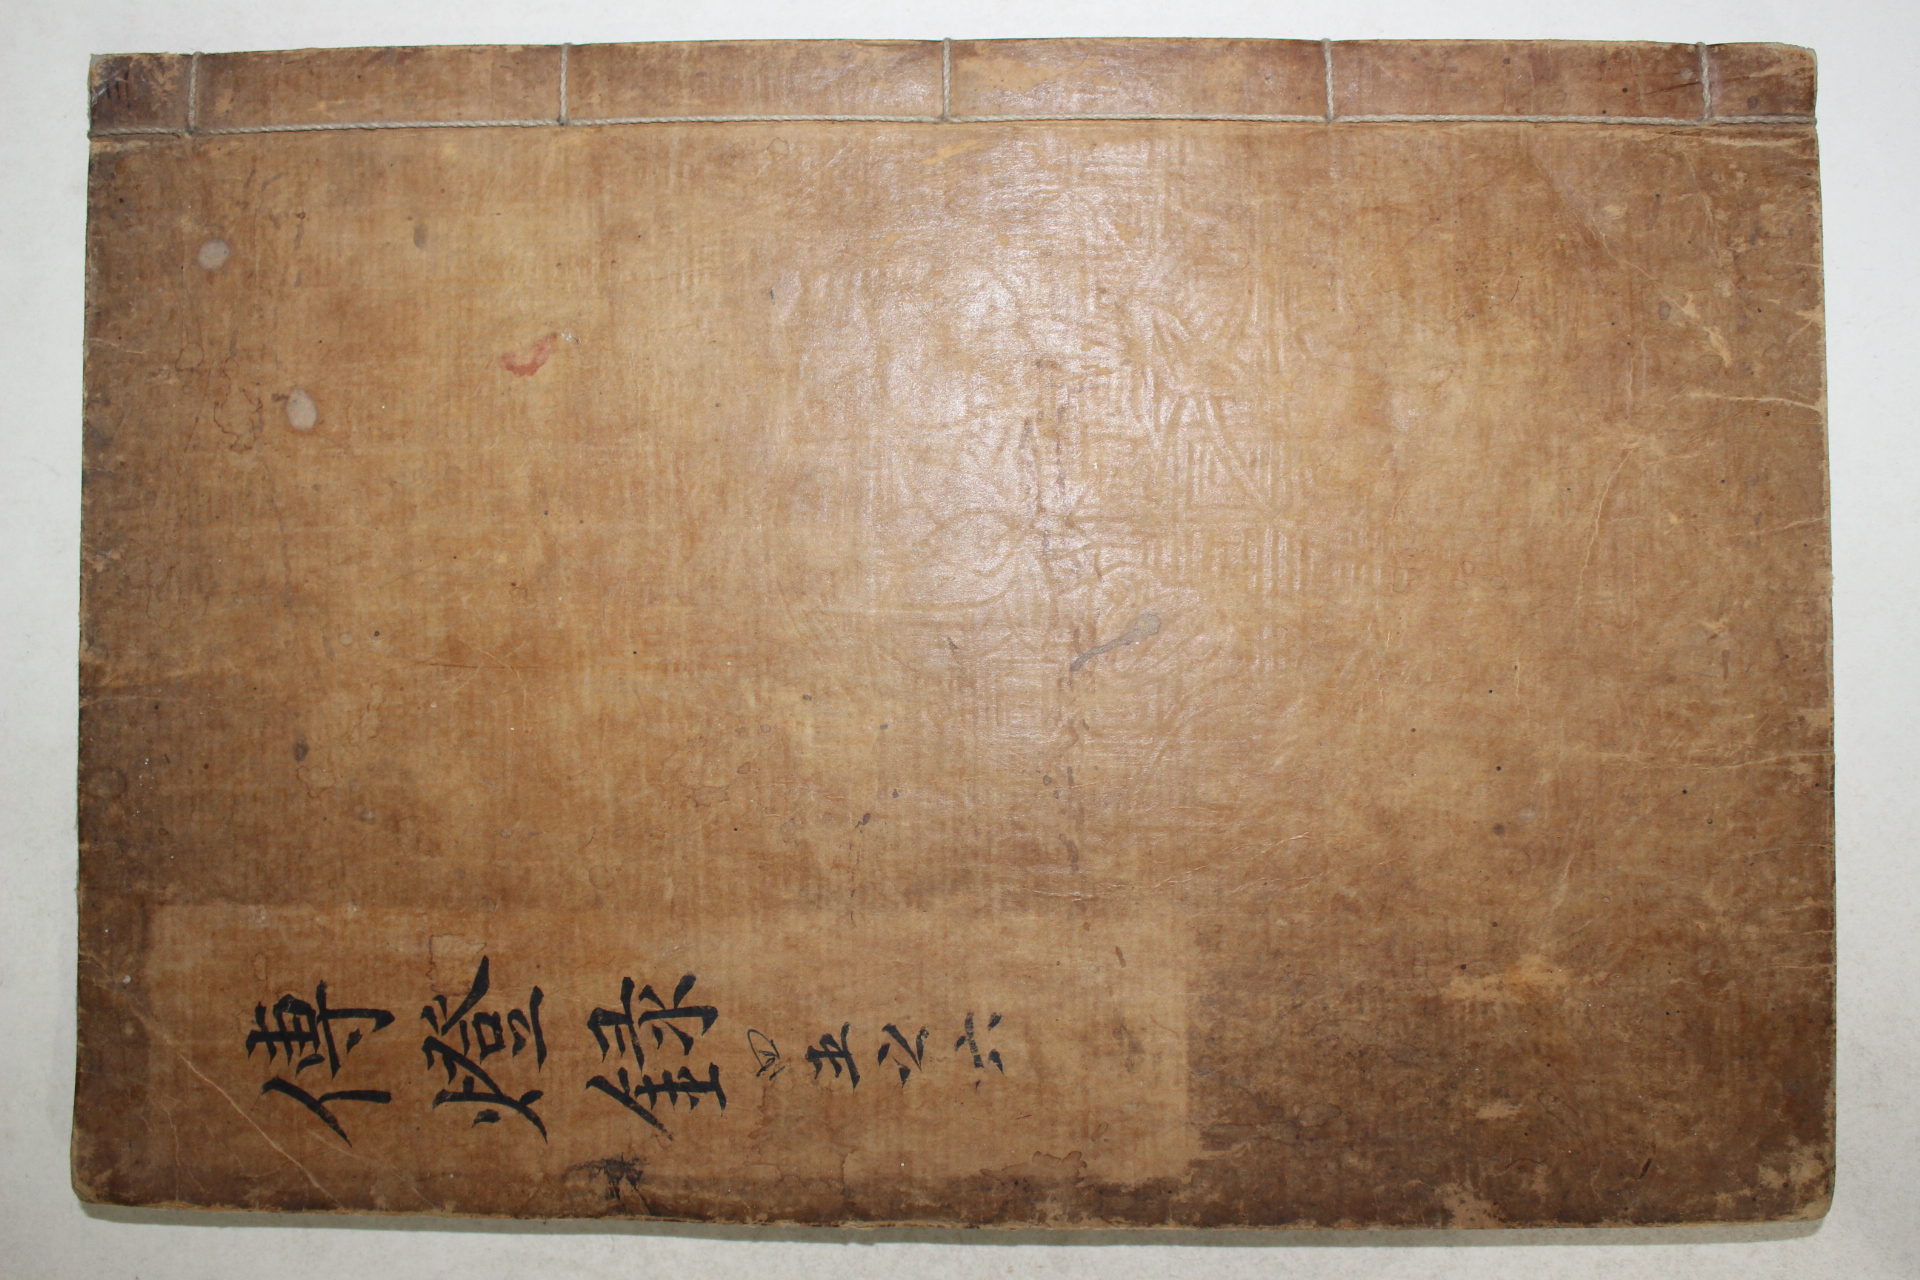 三
傳燈録 四五之六